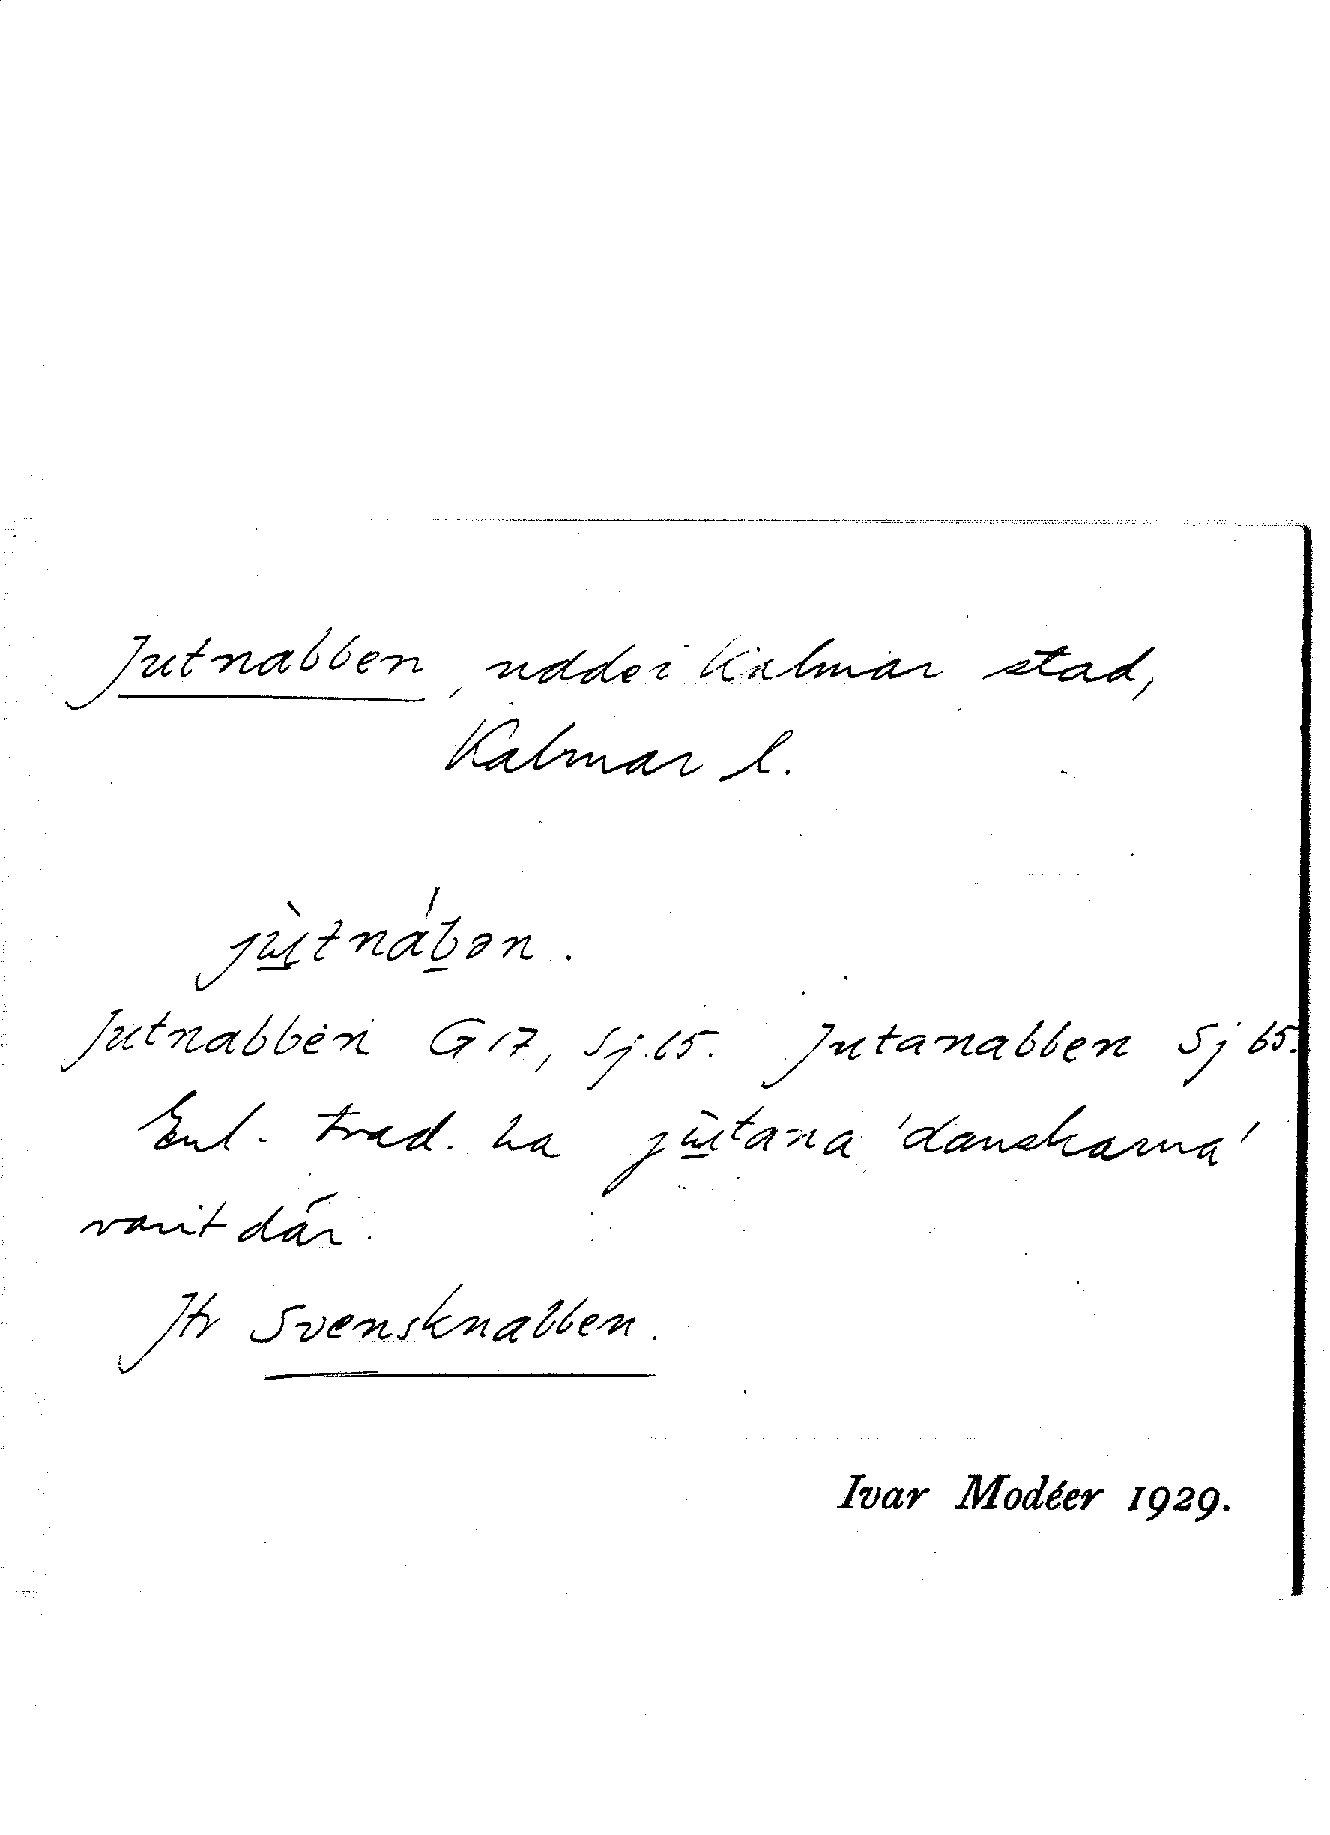 Jutnabben, udde i Kalmar stad,
Kalmar l.
jùtnábən.
Jutnabben G17, Sj.65. Jutanabben Sj 65.
Enl. trad. ha jùtana 'danskarna'
varit där.
Jfr Svensknabben.
Ivar Modéer 1929.